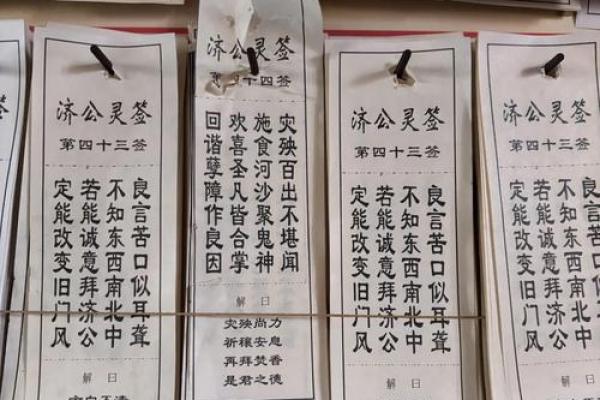 济公灵签
第四十三签
良言苦口似耳聋
不知东西南北中
若能诚意拜济公
定能改变旧门风
解曰
济公灵签
第十四签
灾殃百出不堪闻
施食河沙聚鬼神
欢喜圣凡皆合掌
回谐孽障作良因
解曰
灾殃尚力
祈禳安息
再拜焚香
是君之德
济公灵签
第四十三签
良言苦口似耳聋
不知东西南北中
若能诚意拜济公
定能改变旧门风
解曰
济公灵签
第四十三签
良言苦口似耳聋
不知东西南北中
若能诚意拜济公
定能改变旧门风
解曰